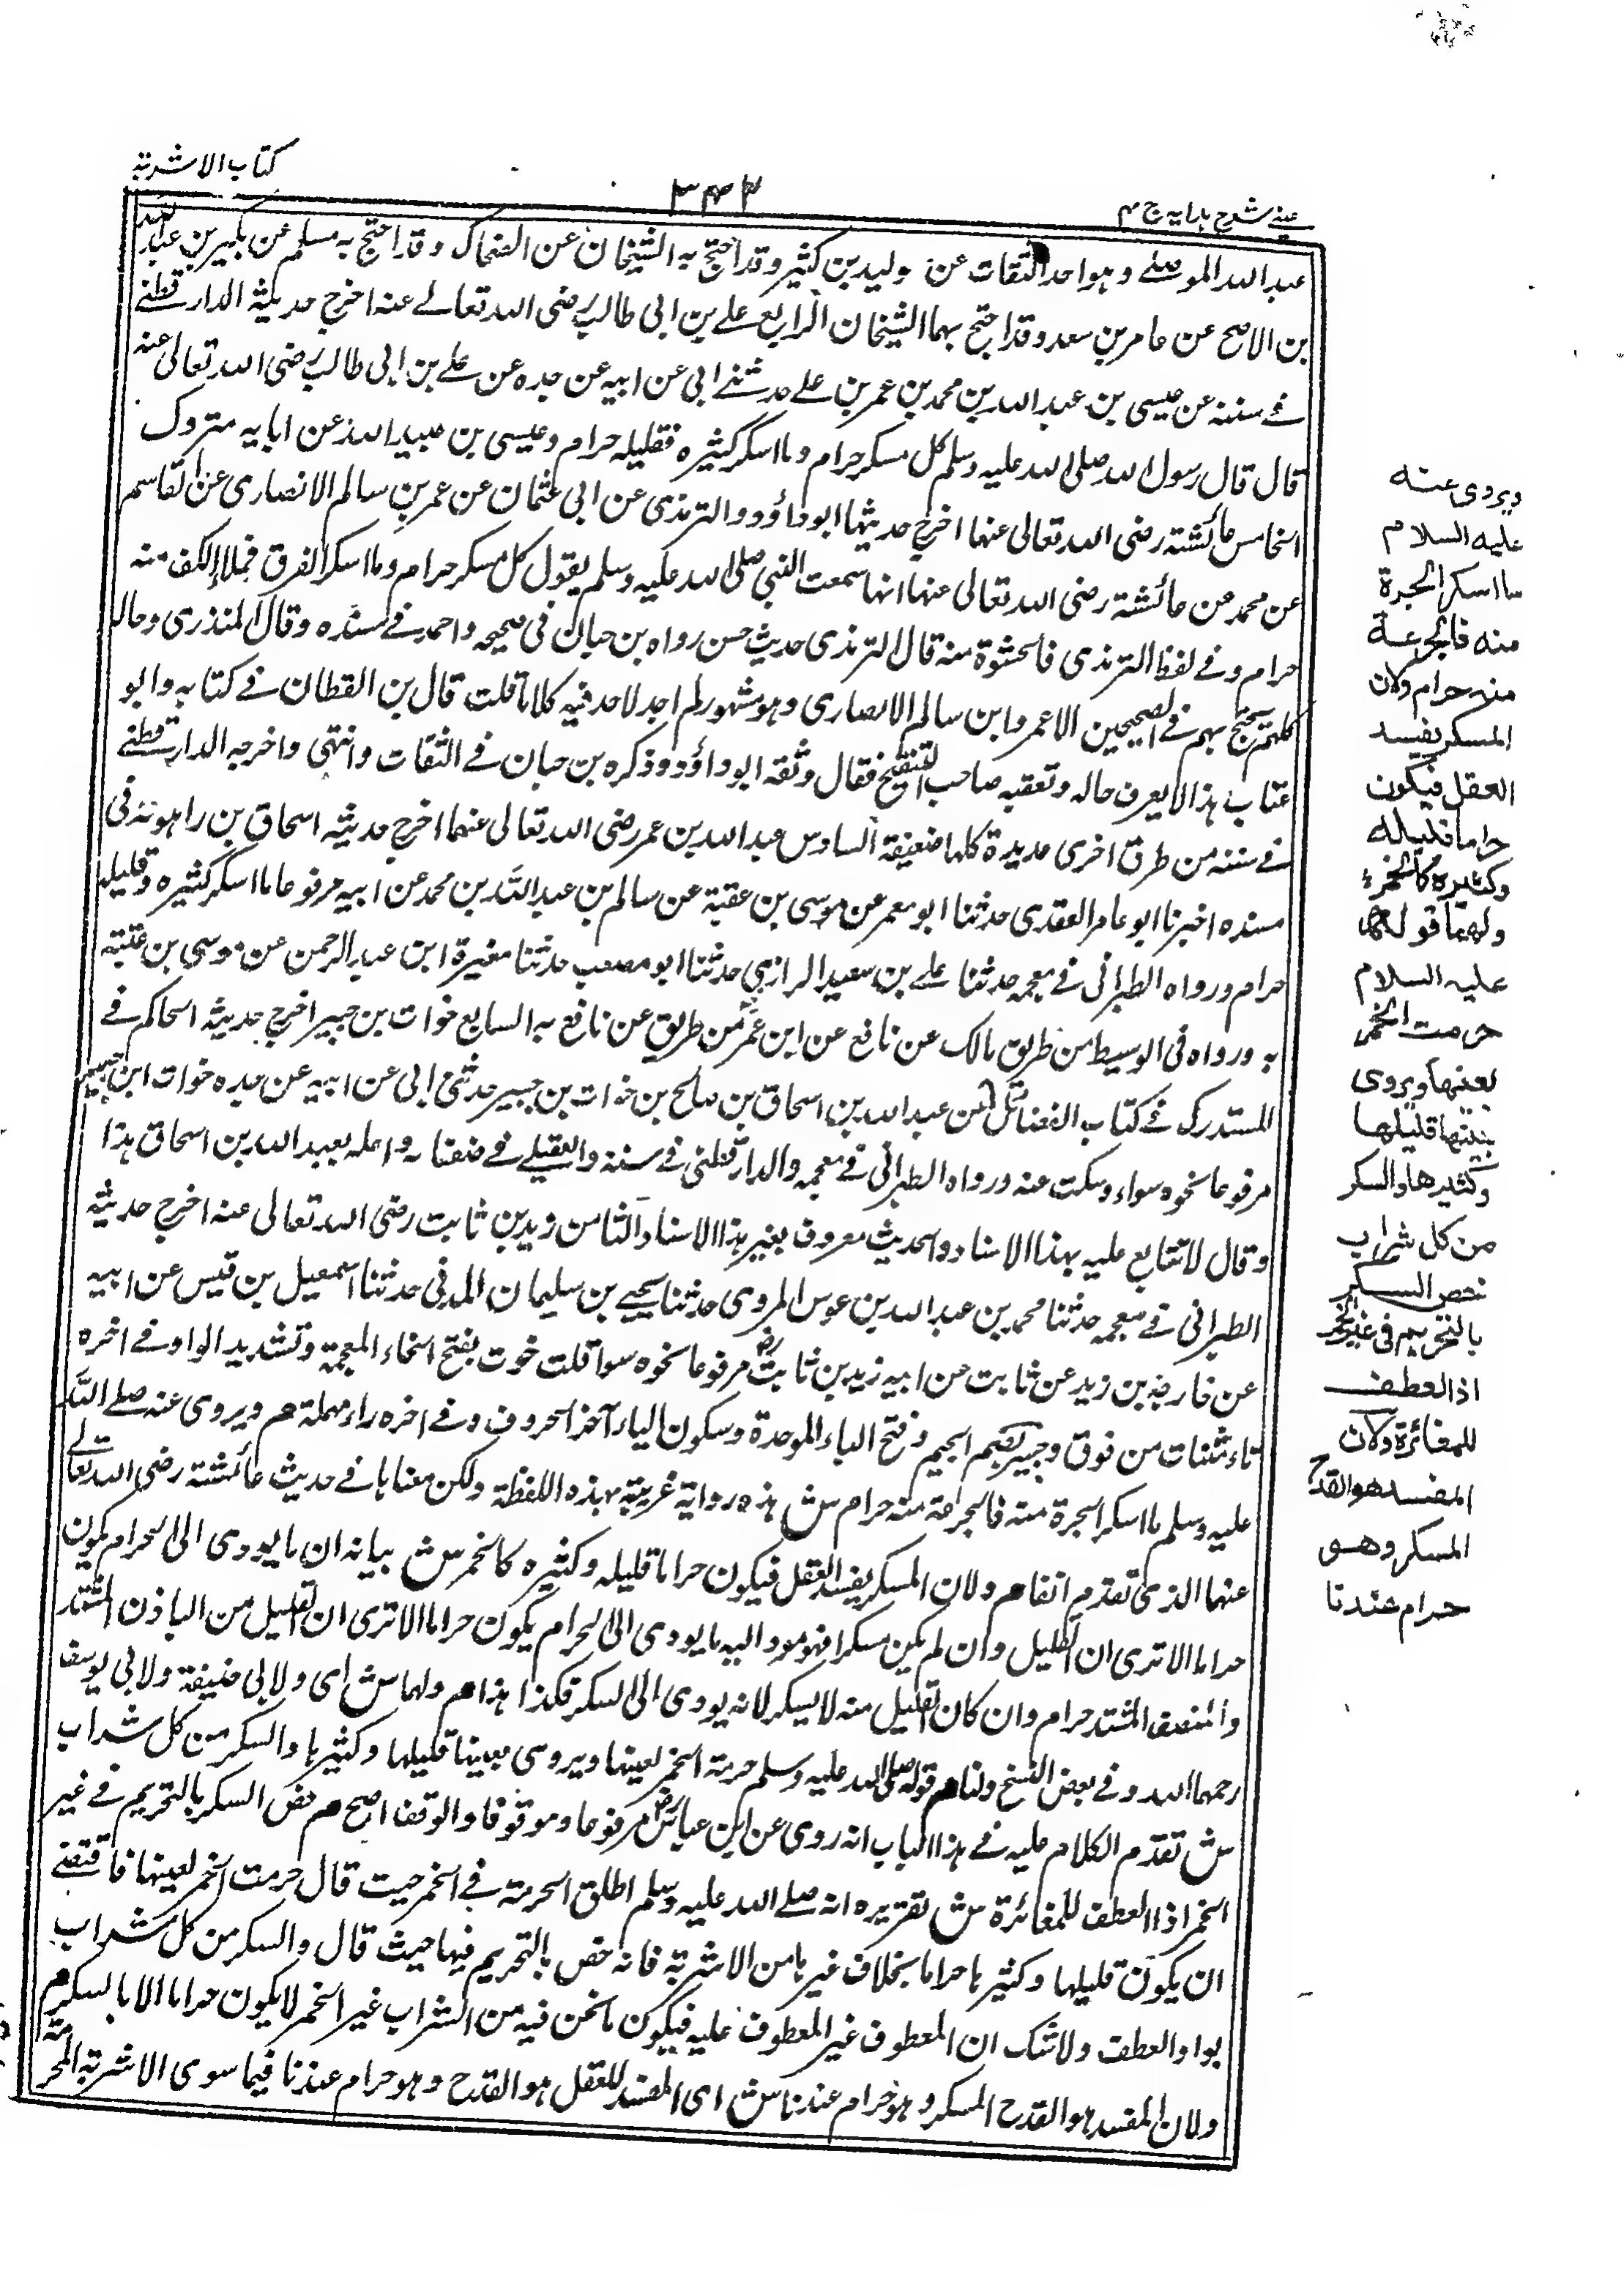 كتاب الاشربة
۳۴۳
عينے شرح ہدایہ ج ۴
عبد اللہ الموصلے وہو احد الثقات عن ولید بن کثیر وقد احتج بہ الشیخان عن الضحاک وقد احتج بہ مسلم عن بکیر بن عبد اللہ
بن الاصح عن عامر بن سعد وقد احتج بہما الشیخان الرابع علے بن ابی طالب رضی اللہ تعالے عنہ اخرج حدیثہ الدارقطنے
فے سننہ عن عیسی بن عبد اللہ بن محمد بن عمر بن علے حدثنے ابی عن ابیہ عن جدہ عن علے بن ابی طالب رضی اللہ تعالی عنہ
قال قال رسول اللہ صلی اللہ علیہ وسلم کل مسکر حرام وما اسکر کثیرہ فقلیلہ حرام وعیسی بن عبید اللہ عن ابایہ متروک
الخامس عائشتہ رضی اللہ تعالی عنہا اخرج حدیثہا ابوداؤد والترمذی عن ابی عثمان عن عمر بن سالم الانصاری عن القاسم
عن محمد عن عائشتہ رضی اللہ تعالی عنہا انہا سمعت النبی صلی اللہ علیہ وسلم یقول کل مسکر حرام وما اسکر الفرق فملا الکف منہ
حرام وفے لفظ الترمذی فالحشوة منہ قال الترمذی حدیث حسن رواہ بن حبان فی صحیحہ واحمد فے مسندہ وقال المنذری رجالہ
کلہم یحتج بہم فے الصحیحین الا عمر وابن سالم الانصاری وہو مشہور لم اجد لاحد فیہ کلاما قلت قال بن القطان فے کتابہ وابو
عتاب ہذا لا یعرف حالہ وتعقبہ صاحب التنقیح فقال وثقہ ابوداؤد وذکرہ بن حبان فے الثقات وانتہی واخرجہ الدارقطنے
فے سننہ من طرق اخری عدیدة کلہا ضعیفة السادس عبد اللہ بن عمر رضی اللہ تعالی عنہما اخرج حدیثہ اسحاق بن راہونہ فی
مسندہ اخبرنا ابو عامر العقدی حدثنا ابو معمر عن موسی بن عقبة عن سالم بن عبد اللہ بن محمد عن ابیہ مرفوعا ما اسکر کثیرہ وقلیلہ
حرام ورواہ الطبرانی فے معجمہ حدثنا علے بن سعید الرازی حدثنا ابو مصعب حدثنا مغیرة ابن عبد الرحمن عن موسی بن عقبتہ
بہ ورواہ فی الوسیط من طریق مالک عن نافع عن ابن عمر من طریق عن نافع بہ السابع خوات بن جبیر اخرج حدیثہ الحاکم فے
المستدرک فے کتاب الفضائل عن عبد اللہ بن اسحاق بن صالح بن خوات بن جبیر حدثنی ابی عن ابیہ عن جدہ خوات ابن جبیر
مرفوعا نحوہ سواء وسکت عنہ ورواہ الطبرانی فے معجمہ والدارقطنی فے سننہ والعقیلے فے ضعفائہ واعلہ بعبد اللہ بن اسحاق ہذا
وقال لا یتابع علیہ بہذا الاسناد والحدیث معروف بغیر ہذا الاسناد الثامن زید بن ثابت رضی اللہ تعالی عنہ اخرج حدیثہ
الطبرانی فے معجمہ حدثنا محمد بن عبد اللہ بن عوس المروی حدثنا یحیے بن سلیمان المدنی حدثنا اسمعیل بن قیس عن ابیہ
عن خارجہ بن زید عن ثابت عن ابیہ زید بن ثابت رض مرفوعا نحوہ سوا قلت خوت بفتح الخاء المعجمة وتشدید الواو فے اخرہ
تاء مثنات من فوق وجبیر بضم الجیم وفتح الباء الموحدة وسکون الیاء آخر الحروف وفے اخرہ راء مہملة م ویروی عنہ صلے اللہ
علیہ وسلم ما اسکر الجرة منہ فالجرعة منہ حرام ش ہذہ روایة غریبة بہذہ اللفظة ولکن معناہا فے حدیث عائشتہ رضی اللہ تعالے
عنہا الذی تقدم انفا م ولان المسکر یفسد العقل فیکون حراما قلیلہ وکثیرہ کالخمر ش بیانہ ان ما یودی الی الحرام یکون
حراما الا تری ان القلیل وان لم یکن مسکرا فہو مود الیہ ما یودی الی الحرام یکون حراما الا تری ان القلیل من الباذن المشتد
والمنصف المشتد حرام وان کان القلیل منہ لا یسکر لانہ یودی الی السکر فکذا ہذا م ولہما ش ای ولابی حنیفة ولابی یوسف
رحمہما اللہ وفے بعض النسخ ولنا م قولہ صلی اللہ علیہ وسلم حرمت الخمر لعینہا ویروی بعینہا قلیلہا وکثیرہا والسکر من کل شراب
ش تقدم الکلام علیہ فے ہذا الباب انہ روی عن ابن عباس رض مرفوعا وموقوفا والوقف اصح م خص السکر بالتحریم فے غیر
الخمر اذا العطف للمغائرة ش تقریرہ انہ صلے اللہ علیہ وسلم اطلق الحرمتہ فے الخمر حیث قال حرمت الخمر لعینہا فاقتضے
ان یکون قلیلہا وکثیرہا حراما بخلاف غیرہا من الاشربة فانہ خص بالتحریم فیہا حیث قال والسکر من کل شراب
بواو العطف ولاشک ان المعطوف غیر المعطوف علیہ فیکون ما نحن فیہ من الشراب غیر الخمر لا یکون حراما الا بالسکر م
ولان المفسد ہو القدح المسکر وہو حرام عندنا ش ای المفسد للعقل ہو القدح وہو حرام عندنا فیما سوی الاشربة المحرمتہ
ویروی عنہ
علیہ السلام
ما اسکر الجرة
منہ فالجرعة
منہ حرام ولان
المسکر یفسد
العقل فیکون
حراما قلیلہ
وکثیرہ کالخمر
ولہما قولہ
علیہ السلام
حرمت الخمر
لعینہا ویروی
بعینہا قلیلہا
وکثیرھا والسکر
من کل شراب
خص السکر
بالتحریم فی غیر الخمر
اذ العطف
للمغائرة ولان
المفسد ھو القدح
المسکر وھو
حرام عندنا